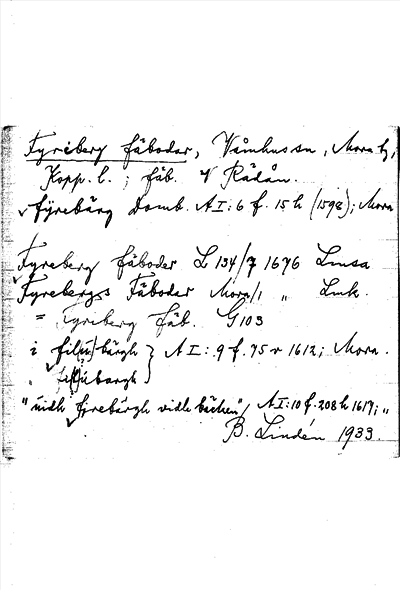 Fyreberg fäbodar, Våmhus sn, Mora tg,
Kopp. l. ; fäb. V Rädån.
fÿrebärg Domb. A I:6 f. 15 h (1598); Mora
Fyreberg fäbodar L 134/7 1676 Linsa
Fyrebergs Fäbodar Mora/1 „ Lmk.
= Fyreberg Fäb. G 103
i bärgh } A I:9 f. 75 v 1612; Mora.
„ bargh
"üidh fjrebärgh vidh bäcken", A I:10 f. 208 h 1617; „
B. Lindén 1933.